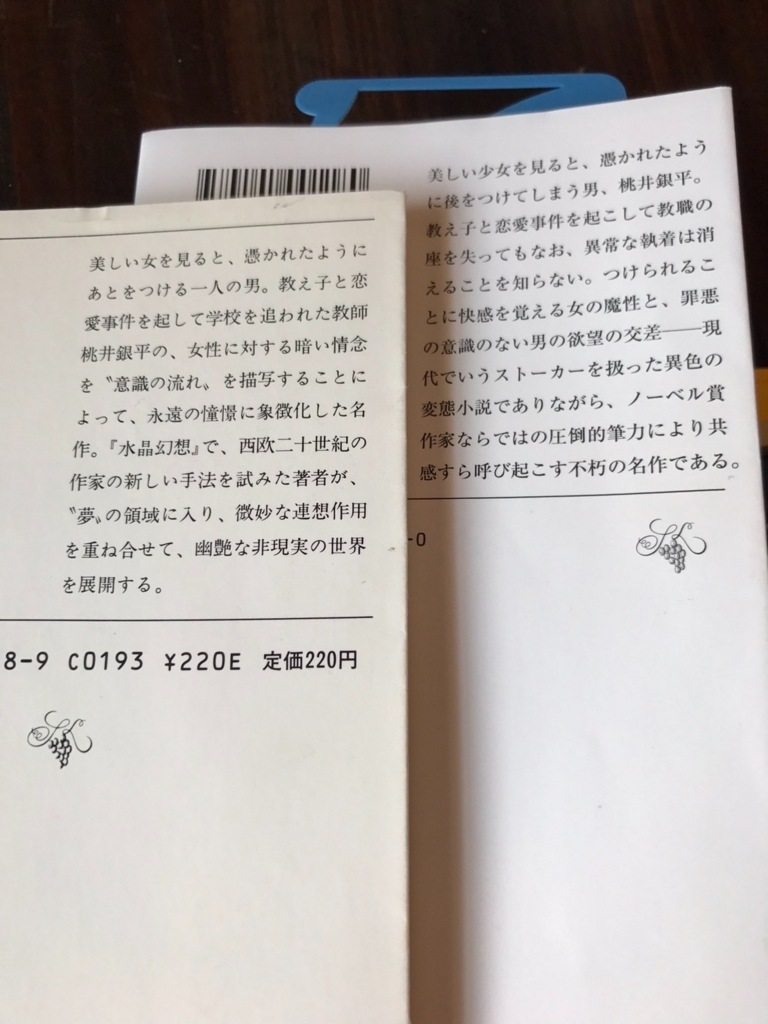 美しい女を見ると、憑かれたように
あとをつける一人の男。教え子と恋
愛事件を起して学校を追われた教師
桃井銀平の、女性に対する暗い情念
を〝意識の流れ〟を描写することに
よって、永遠の憧憬に象徴化した名
作。『水晶幻想』で、西欧二十世紀の
作家の新しい手法を試みた著者が、
〝夢〟の領域に入り、微妙な連想作用
を重ね合せて、幽艶な非現実の世界
を展開する。
8-9 C0193 ¥220E 定価220円
美しい少女を見ると、憑かれたよう
に後をつけてしまう男、桃井銀平。
教え子と恋愛事件を起こして教職の
座を失ってもなお、異常な執着は消
えることを知らない。つけられるこ
とに快感を覚える女の魔性と、罪悪
の意識のない男の欲望の交差――現
代でいうストーカーを扱った異色の
変態小説でありながら、ノーベル賞
作家ならではの圧倒的筆力により共
感すら呼び起こす不朽の名作である。
-0